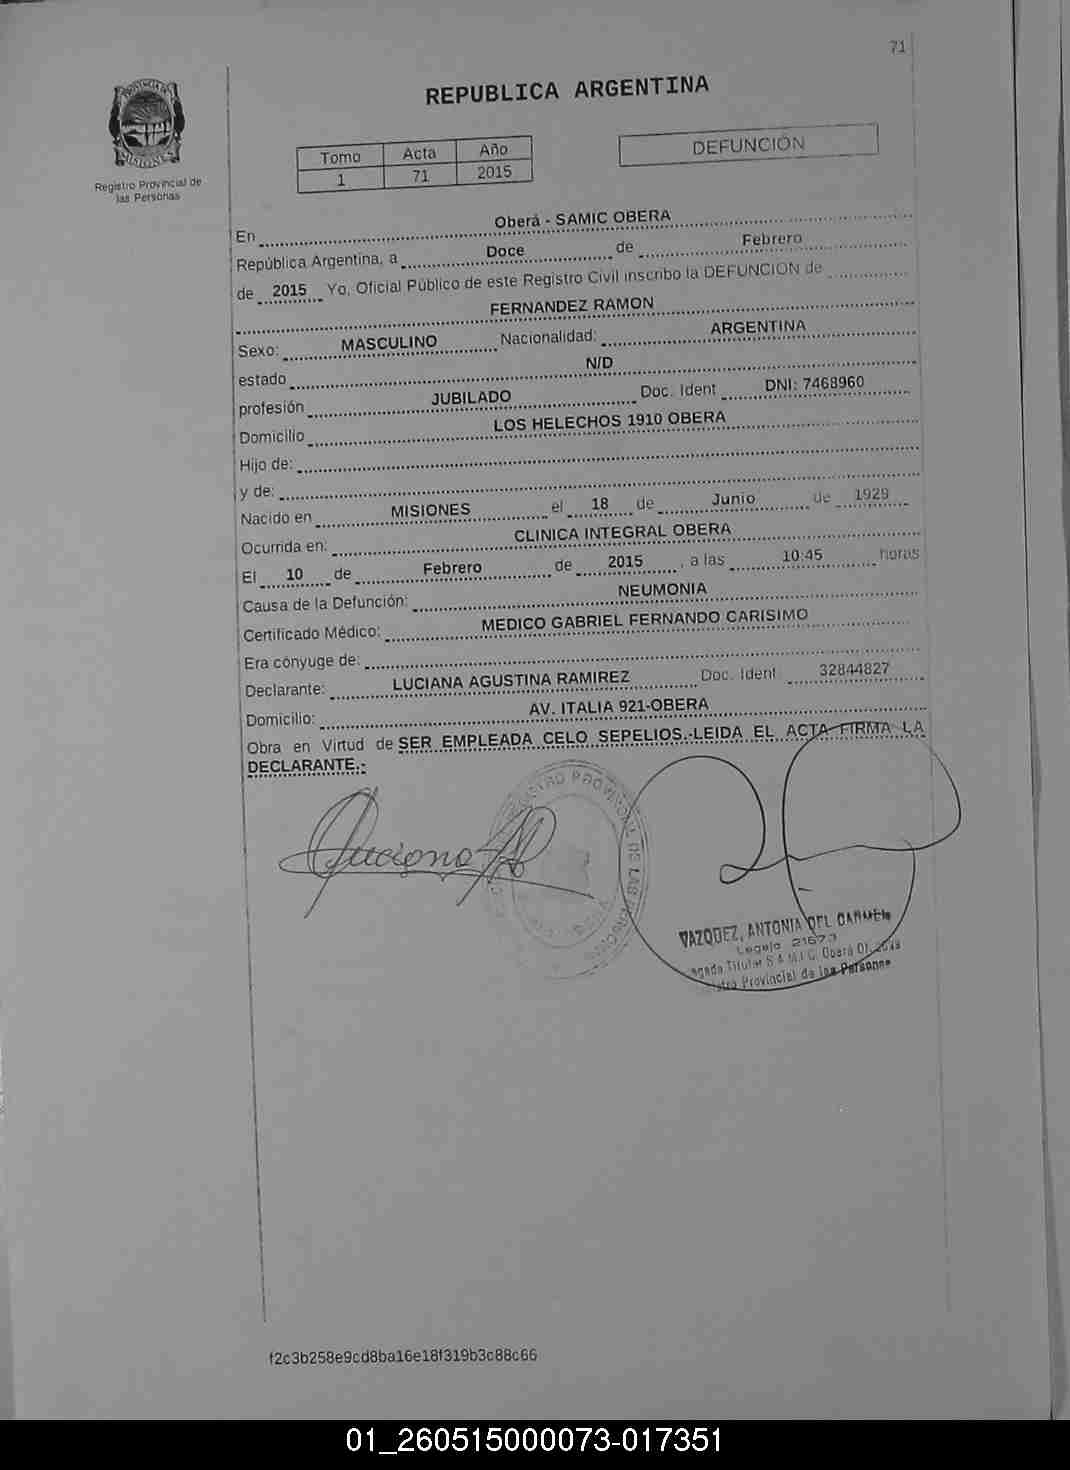 71
PROVINCIA DE
MISIONES
Registro Provincial de
las Personas
REPUBLICA ARGENTINA
Tomo Acta Año
1 71 2015
DEFUNCIÓN
En Oberá - SAMIC OBERA
República Argentina, a Doce de Febrero
de 2015 Yo, Oficial Público de este Registro Civil inscribo la DEFUNCION de
FERNANDEZ RAMON
Sexo: MASCULINO Nacionalidad: ARGENTINA
estado N/D
profesión JUBILADO Doc. Ident DNI: 7468960
Domicilio LOS HELECHOS 1910 OBERA
Hijo de:
y de:
Nacido en MISIONES el 18 de Junio de 1929
Ocurrida en: CLINICA INTEGRAL OBERA
El 10 de Febrero de 2015, a las 10:45 horas
Causa de la Defunción: NEUMONIA
Certificado Médico: MEDICO GABRIEL FERNANDO CARISIMO
Era cónyuge de:
Declarante: LUCIANA AGUSTINA RAMIREZ Doc. Ident 32844827
Domicilio: AV. ITALIA 921-OBERA
Obra en Virtud de SER EMPLEADA CELO SEPELIOS.-LEIDA EL ACTA FIRMA LA
DECLARANTE.-
PROVINCIAL DE LAS
Luciana
VAZQUEZ, ANTONIA DEL CARMEN
Legajo 21673
Titular S.A.M.I.C. Oberá
Provincial de las Personas
f2c3b258e9cd8ba16e18f319b3c88c66
01_260515000073-017351